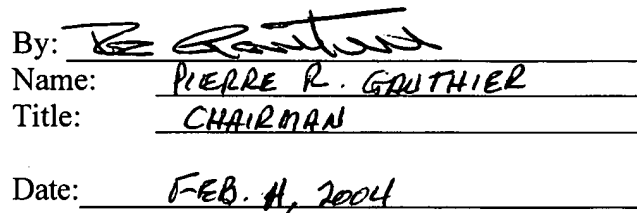 By:
Name: PIERRE R. GAUTHIER
Title: CHAIRMAN
Date: FEB. 4, 2004